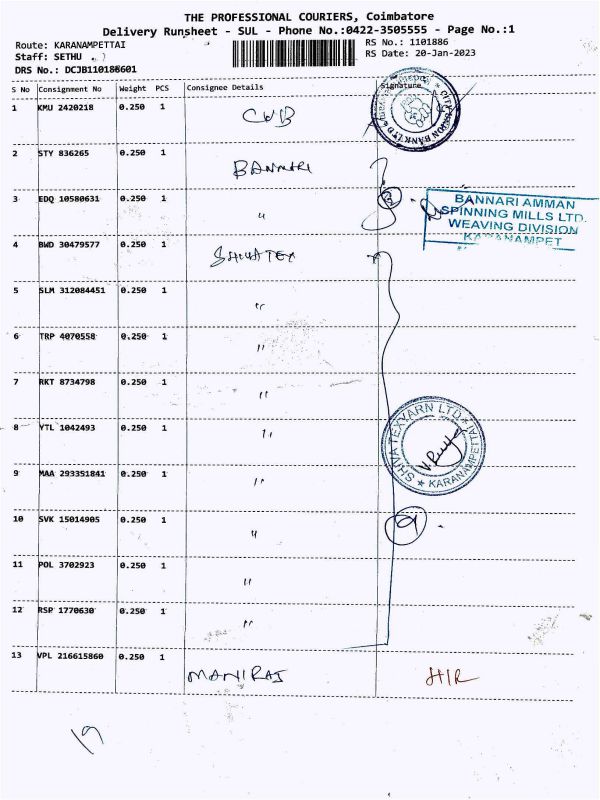 THE PROFESSIONAL COURIERS, Coimbatore
Delivery Runsheet - SUL - Phone No.:0422-3505555 - Page No.:1
Route: KARANAMPETTAI
RS No.: 1101886
Staff: SETHU
RS Date: 20-Jan-2023
DRS No.: DCJB110188601
S No Consignment No Weight PCS Consignee Details Signature
1 KMU 2420218 0.250 1 CUB
CITY UNION BANK LTD
2 STY 836265 0.250 1 BANNARI
3 EDQ 10580631 0.250 1 "
2
BANNARI AMMAN
SPINNING MILLS LTD.
WEAVING DIVISION
KARANAMPET
4 BWD 30479577 0.250 1 SHIVATEX
5 SLM 312084451 0.250 1 "
6 TRP 4070558 0.250 1 "
7 RKT 8734798 0.250 1 "
8 VTL 1042493 0.250 1 "
SHIVA TEXYARN LTD
KARANAMPETTAI
9 MAA 293351841 0.250 1 "
10 SVK 15014905 0.250 1 "
9
11 POL 3702923 0.250 1 "
12 RSP 1770630 0.250 1 "
13 VPL 216615860 0.250 1 MANIRAJ
19